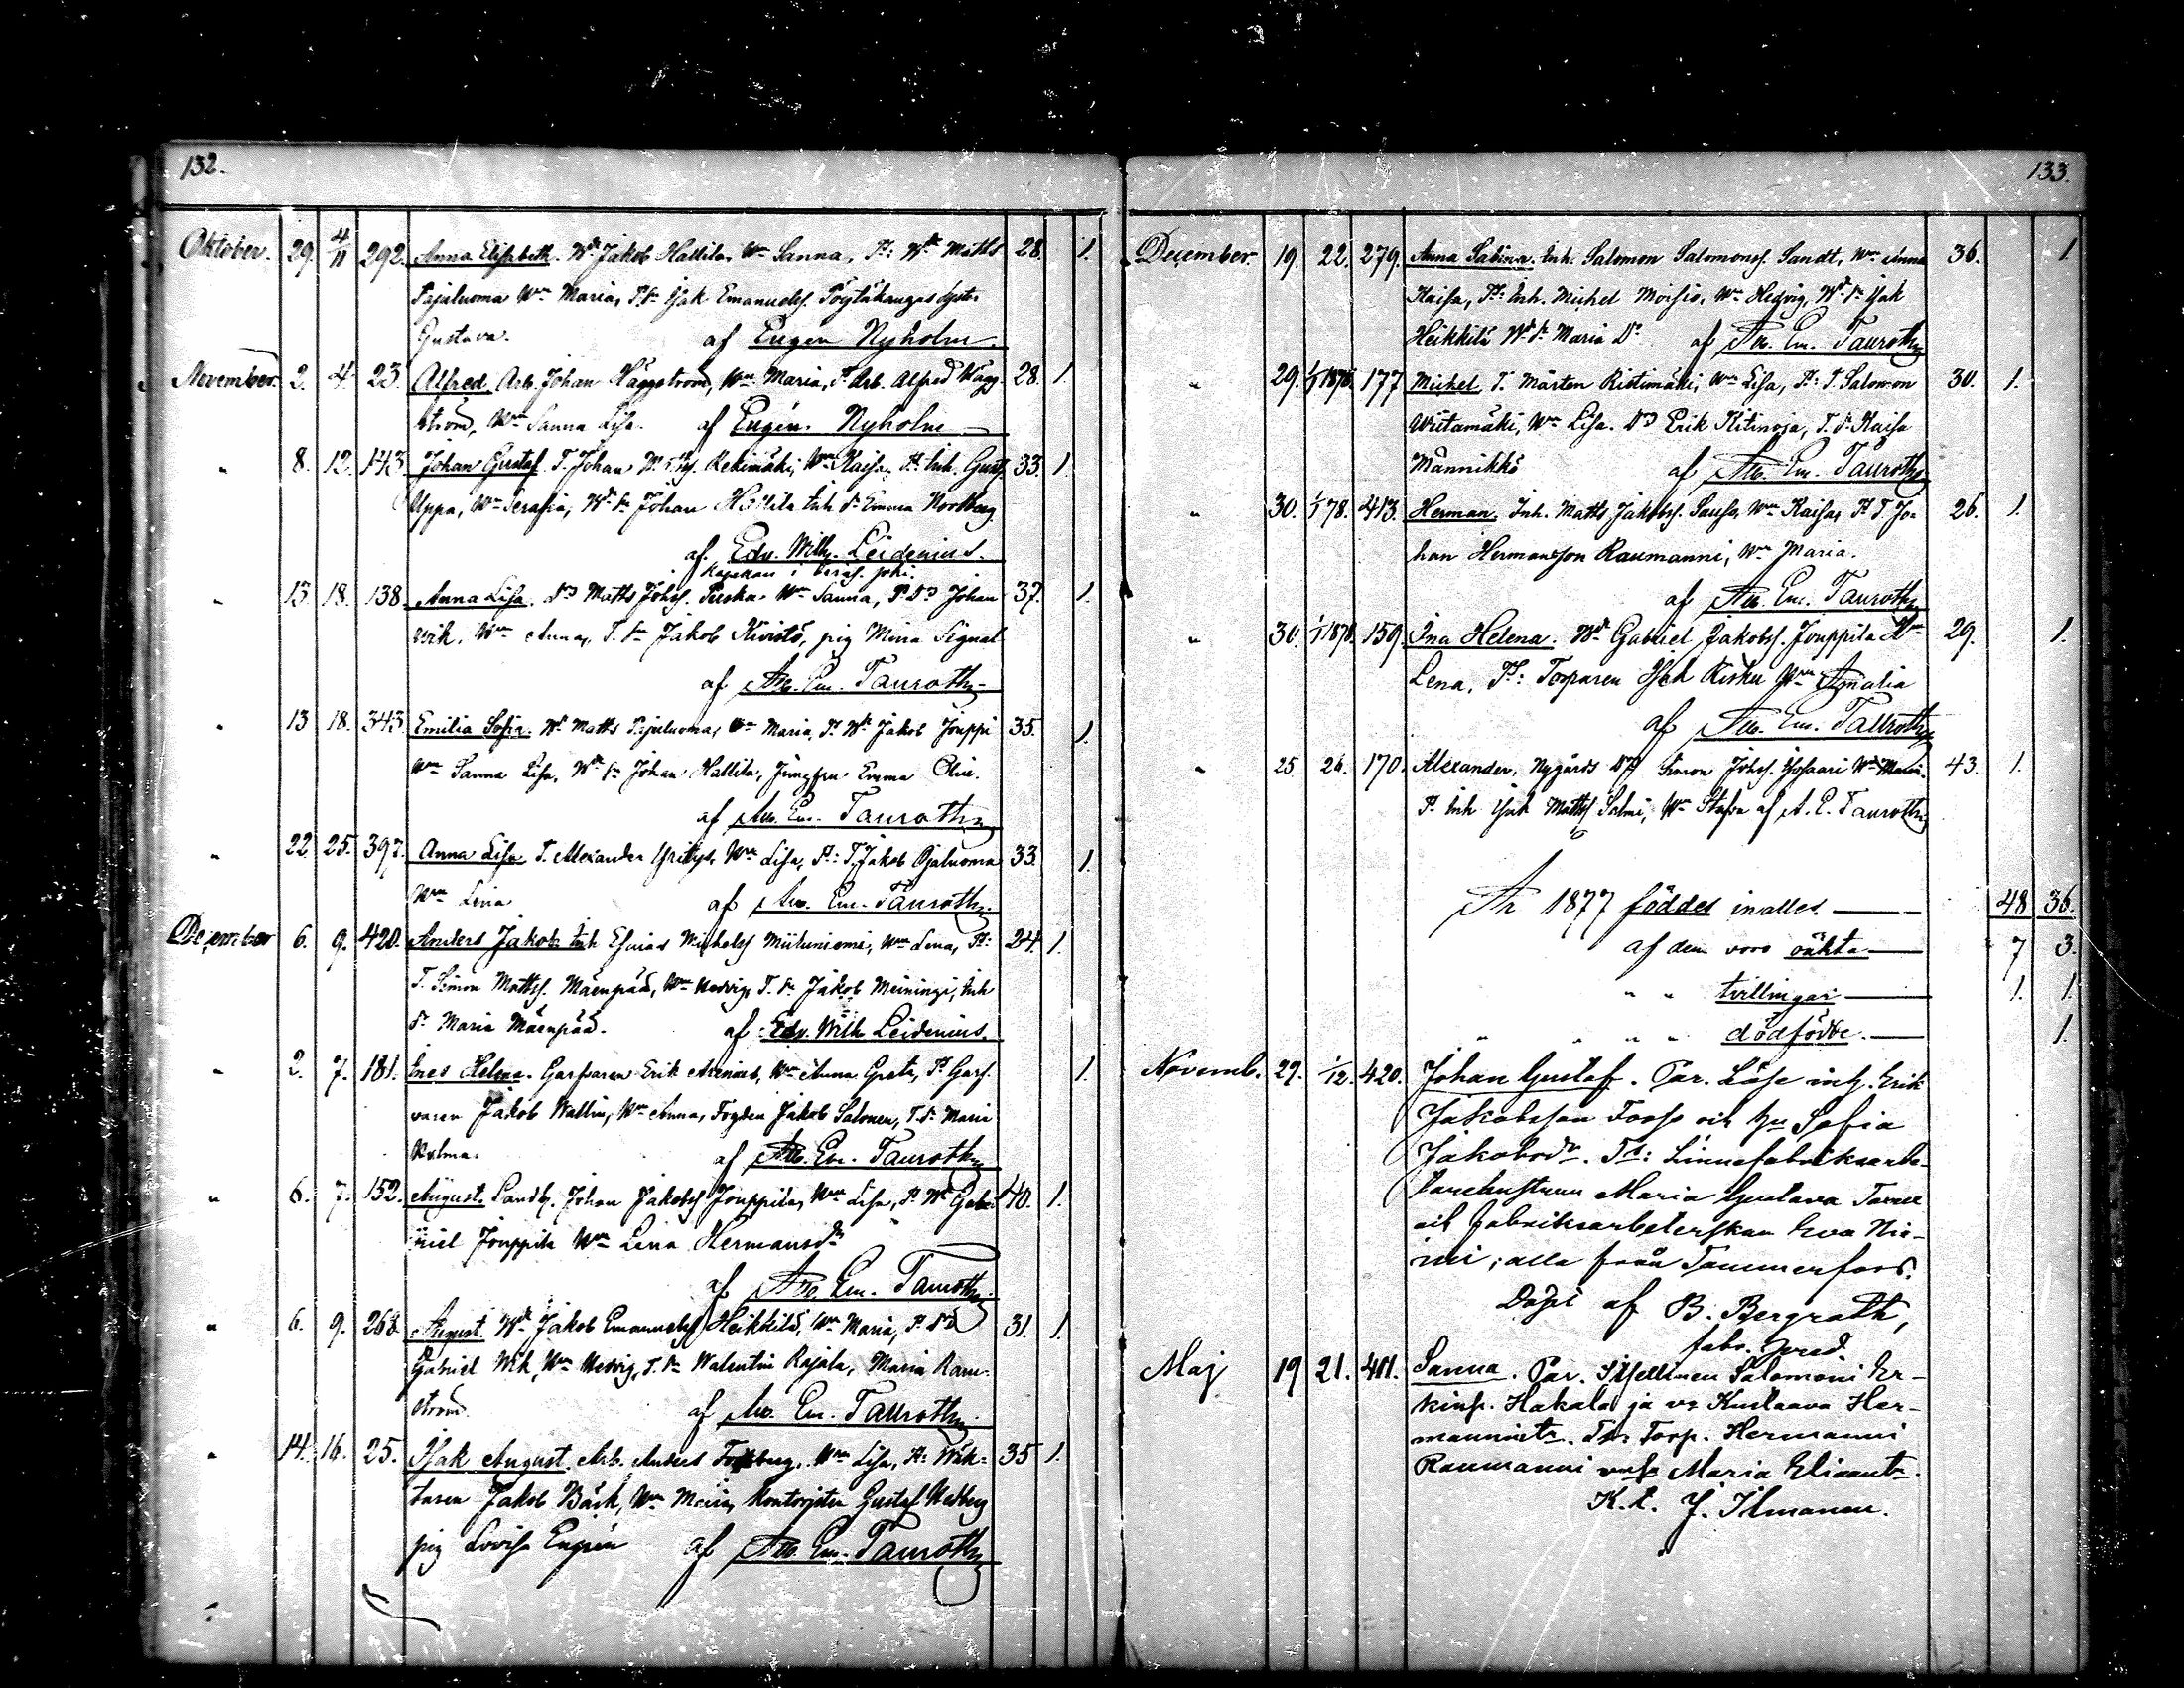 132.
Oktober. 29. 4/11 292. Anna Elisabeth. Wd Jakob Hallila, Wm Sanna, Tt: Wd Matts 28. 1.
Pajuluoma Wm Maria, Isak Emanuelss. Pöytäkangas hust.
Gustava. af Eugen Nyholm.
November. 2. 4. 23. Alfred. Arb. Johan Häggström, Wm Maria, Tt Arb. Alfred Wägg- 28. 1.
ström, Wm Sanna Lisa. af Eugén. Nyholm
" 8. 12. 143. Johan Gustaf. T. Johan Rekimäki, Wm Kaisa, Tt: Inh. Gust. 33. 1.
Uppa, Wm Serafia, Johan Hallila Inh. dr Emma Nordberg
af. Edv. Wilh. Leidenius.
Kapekan i
" 13. 18. 138. Anna Lisa. Matts Johss. Wm Sanna, Johan 37. 1.
wik, Wm Anna, T. dr Jakob Kivistö, pig Mina Signal
af Alb. Em. Tauroth
" 13 18. 343. Emilia Sofia. Wd Matts Pajuluoma, Wm Maria, Tt Wd Jakob Jouppi 35. 1.
Wm Sanna Lisa, Johan Hallila, Jungfru Emma
af Alb. Em. Tauroth
" 22. 25. 397. Anna Lisa T. Alexander Wm Lisa, Tt: T. Jakob Pajaluoma 33. 1.
Wm Lena af Alb. Em. Tauroth
December 6. 9. 420. Anders Jakob Inh Esaias Michelss Wm Lena, Tt: 24. 1.
T. Simon Mattss. Mäenpää, Wm Hedvig, T. dr Jakob Meiningi, Inh
dr Maria Mäenpää. af Edv. Wilh. Leidenius.
" 2. 7. 181. Ines Helena. Garfvaren Erik Wm Anna Greta, Tt Garf- 1.
varen Jakob Wallin, Wm Anna, Fogden Jakob Salonen, T. dr Maria
af Alb. Em. Tauroth
" 6. 7. 152. August. Landb. Johan Jakobss Jouppila, Wm Lisa, Tt Wd Gab- 40. 1.
riel Jouppila Wm Lena Hermansdr
af Alb. Em. Tauroth
" 6. 9. 268. August. Wd Jakob Emanuelss Heikkilä, Wm Maria, 31. 1.
Gabriel Wik, Wm Hedvig, T. dr Walentin Rajala, Maria Ram-
ström. af Alb. Em. Tauroth
" 14. 16. 25. Isak August. Arb. Anders Forsberg, Wm Lisa, Tt: Wäk- 35 1.
taren Jakob Bäck, Wm Maria, Kontoristen Gustaf Hedberg
pig Lovisa Engrén af Alb. Em. Tauroth
133.
December. 19. 22. 279. Anna Sabina. Inh. Salomon Salomonss. Sandt, Wm Anna 36. 1
Kaisa, Tt: Inh. Michel Moisio, Wm Hedvig, Isak
Heikkilä Maria af Alb. Em. Tauroth
" 29. 1/1 1878. 177. Michel T. Mårten Ristimäki, Wm Lisa, Tt: T. Salomon 30. 1.
Wiitamäki, Wm Lisa. Erik Kitinoja, T. dr Kaisa
Männikkö af Alb. Em. Tauroth
" 30. 1/1 78. 413. Herman. Inh. Matts Jakobss. Wm Kaisa, Tt T Jo- 26. 1.
han Hermansson Raumanni, Wm Maria.
af Alb. Em. Tauroth
" 30. 1/1 1878. 159. Ina Helena. Wd Gabriel Jakobss. Jouppila Wm 29. 1.
Lena, Tt: Torparen Isak Risku Wm Amalia
af Alb. Em. Tauroth
" 25. 26. 170. Alexander, Nygårds Simon Johss. Wm Maria. 43. 1.
Tt. Inh Isak Mattss Salmi, Wm af A. E. Tauroth
År 1877 föddes inalles. 48 36.
af dem voro oäkta 7 3.
" " tvillingar 1. 1.
" " " " dödfödde. 1.
Novemb. 29. 1/12. 420. Johan Gustaf. Par. Löse inh. Erik
Jakobsson Forss och hu Sofia
Jakobsdr. Tt: Linnefabriksarbe-
tarehustrun Maria Gustava
och fabriksarbeterskan Eva Nie-
mi; alla från Tammerfors.
Döpt af B. Bergroth,
fabr. pred.
Maj 19 21. 401. Sanna. Par. Itsellinen Salomoni Er-
kinp. Hakala ja vo Kustaava Her-
mannintr. Tt: Torp. Hermanni
Raumanni Maria Eliaantr.
K. t. J. Ilmanen.